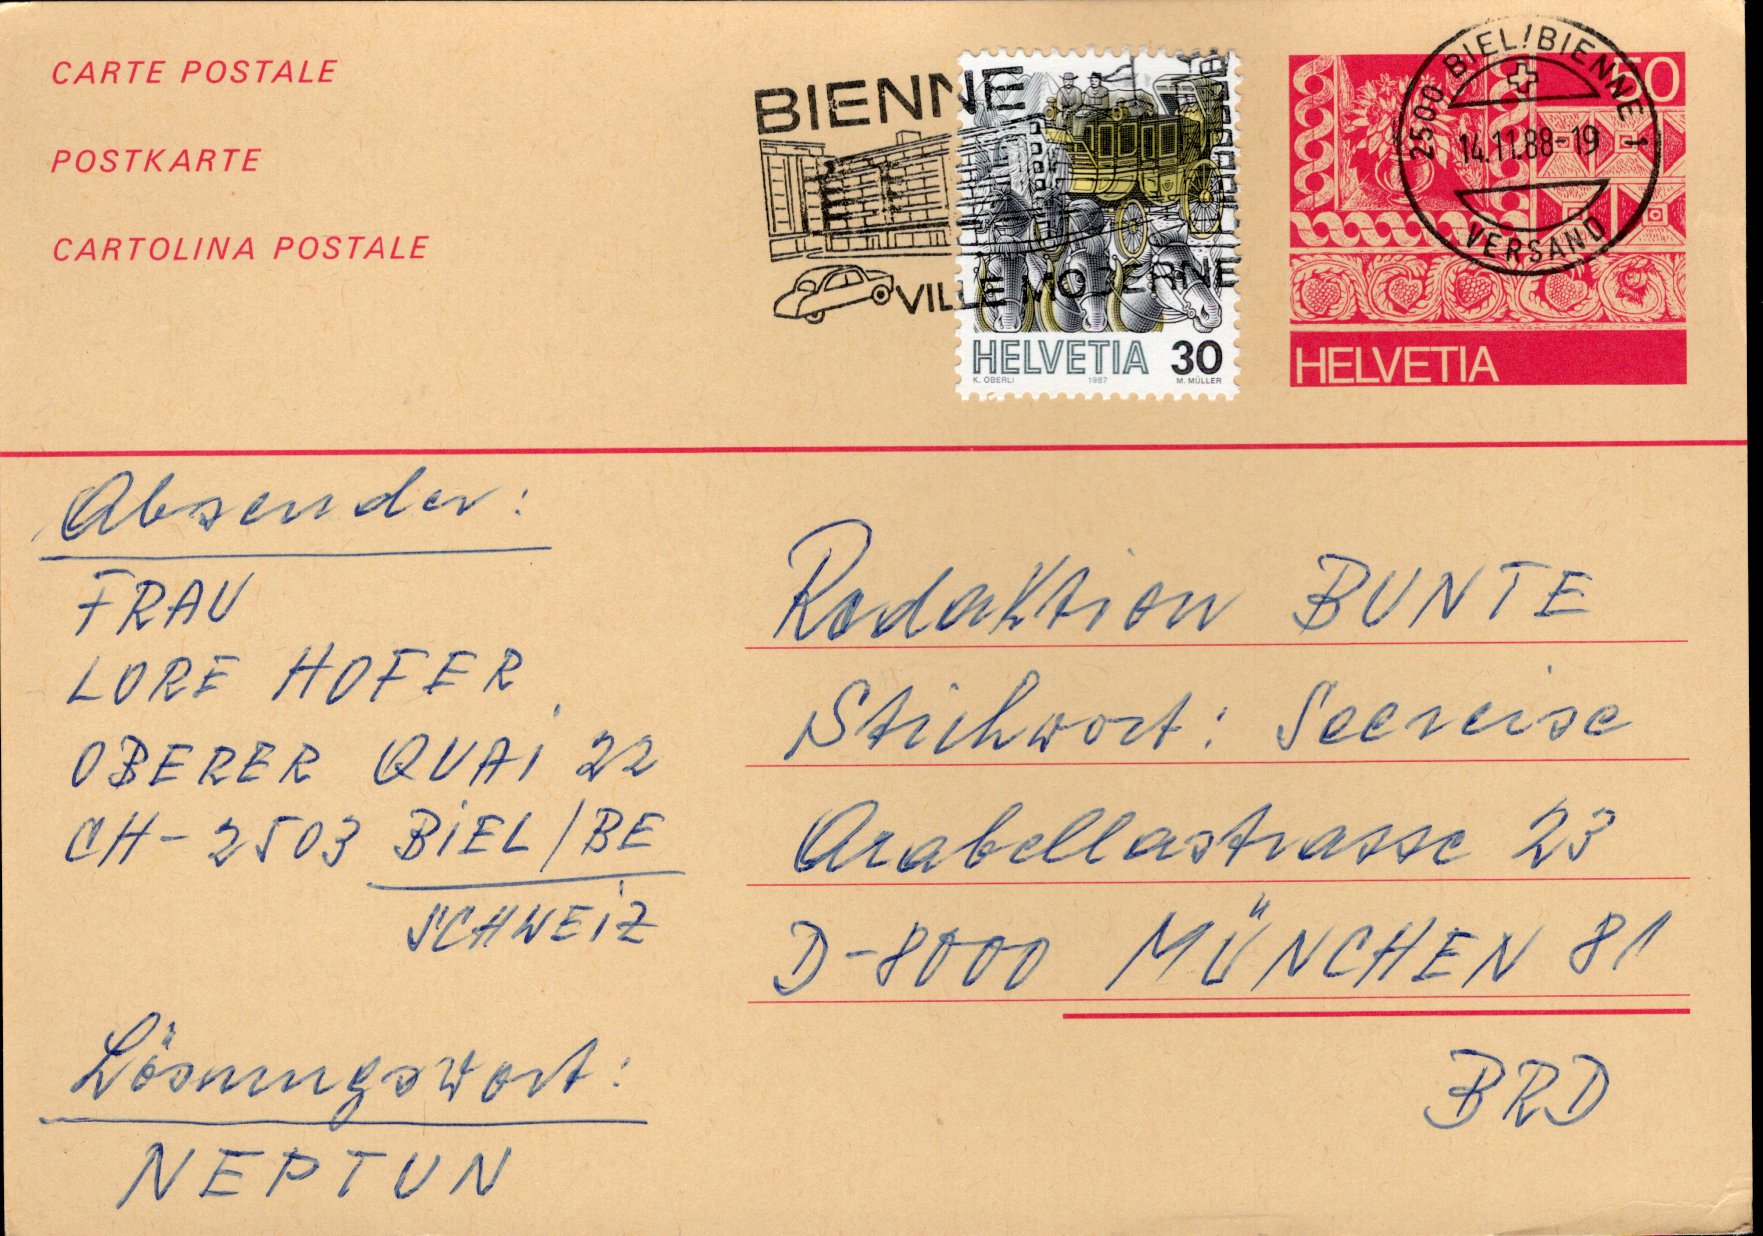 CARTE POSTALE
POSTKARTE
CARTOLINA POSTALE
BIENNE
VILLE MODERNE
HELVETIA 30
K. OBERLI 1987 M. MÜLLER
2500 BIEL/BIENNE 1
14.11.88-19
VERSAND
50
HELVETIA
Absender:
FRAU
LORE HOFER
OBERER QUAI 22
CH-2503 BIEL/BE
SCHWEIZ
Lösungswort:
NEPTUN
Redaktion BUNTE
Stichwort: Seereise
Arabellastrasse 23
D-8000 MÜNCHEN 81
BRD